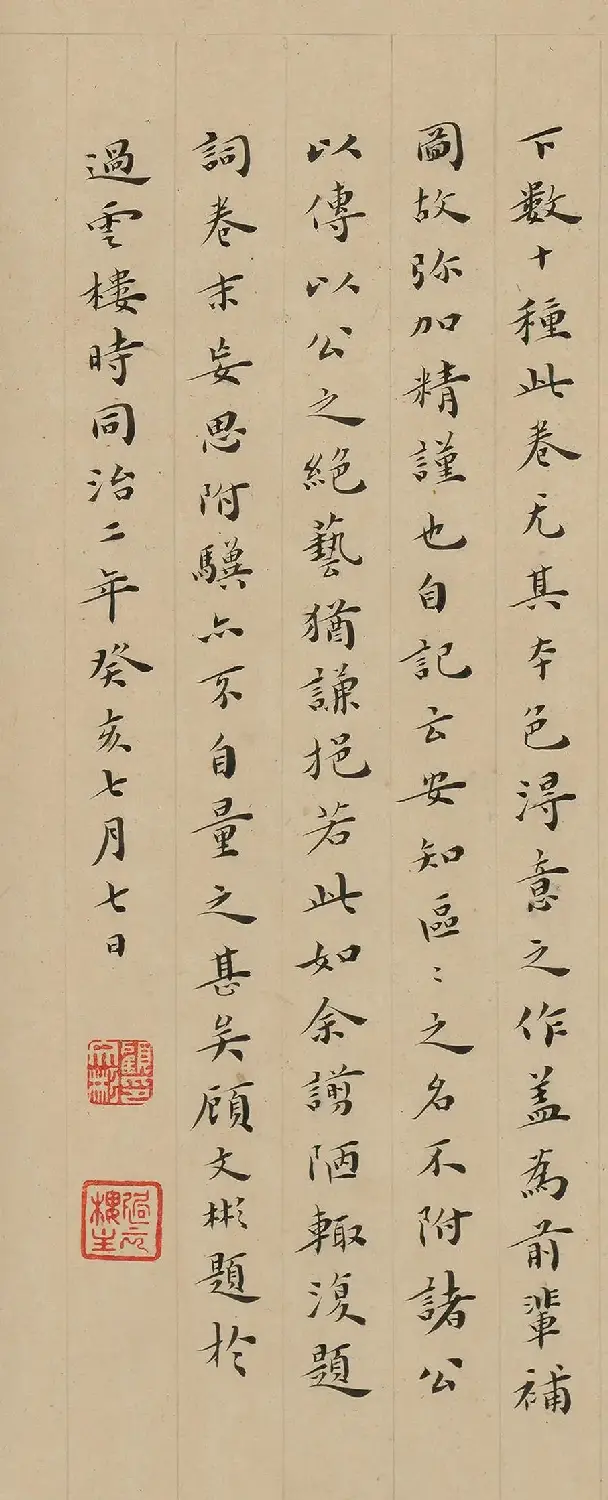 下数十種此卷尤其本色淂意之作盖為前輩補
圖故弥加精謹也自記云安知區〻之名不附諸公
以傳以公之絕藝猶謙挹若此如余謭陋輙復題
詞卷末妄思附驥亦不自量之甚矣顧文彬題於
過雲樓時同治二年癸亥七月七日
顧文彬印
過雲樓主